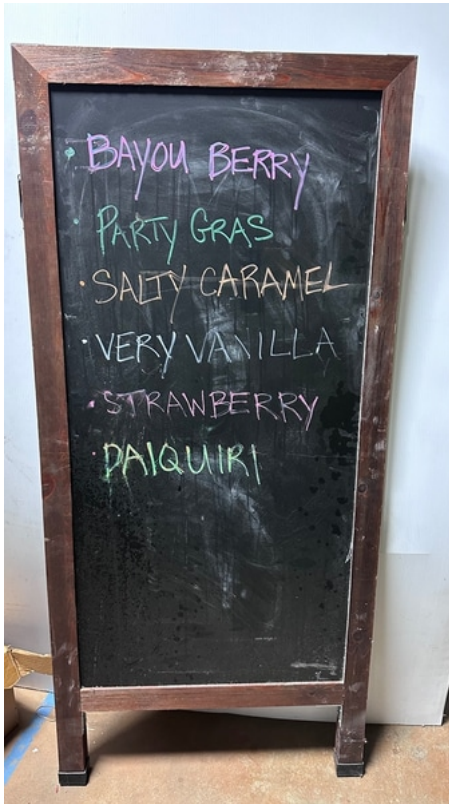 • BAYOU BERRY
• PARTY GRAS
• SALTY CARAMEL
• VERY VANILLA
• STRAWBERRY
• DAIQUIRI